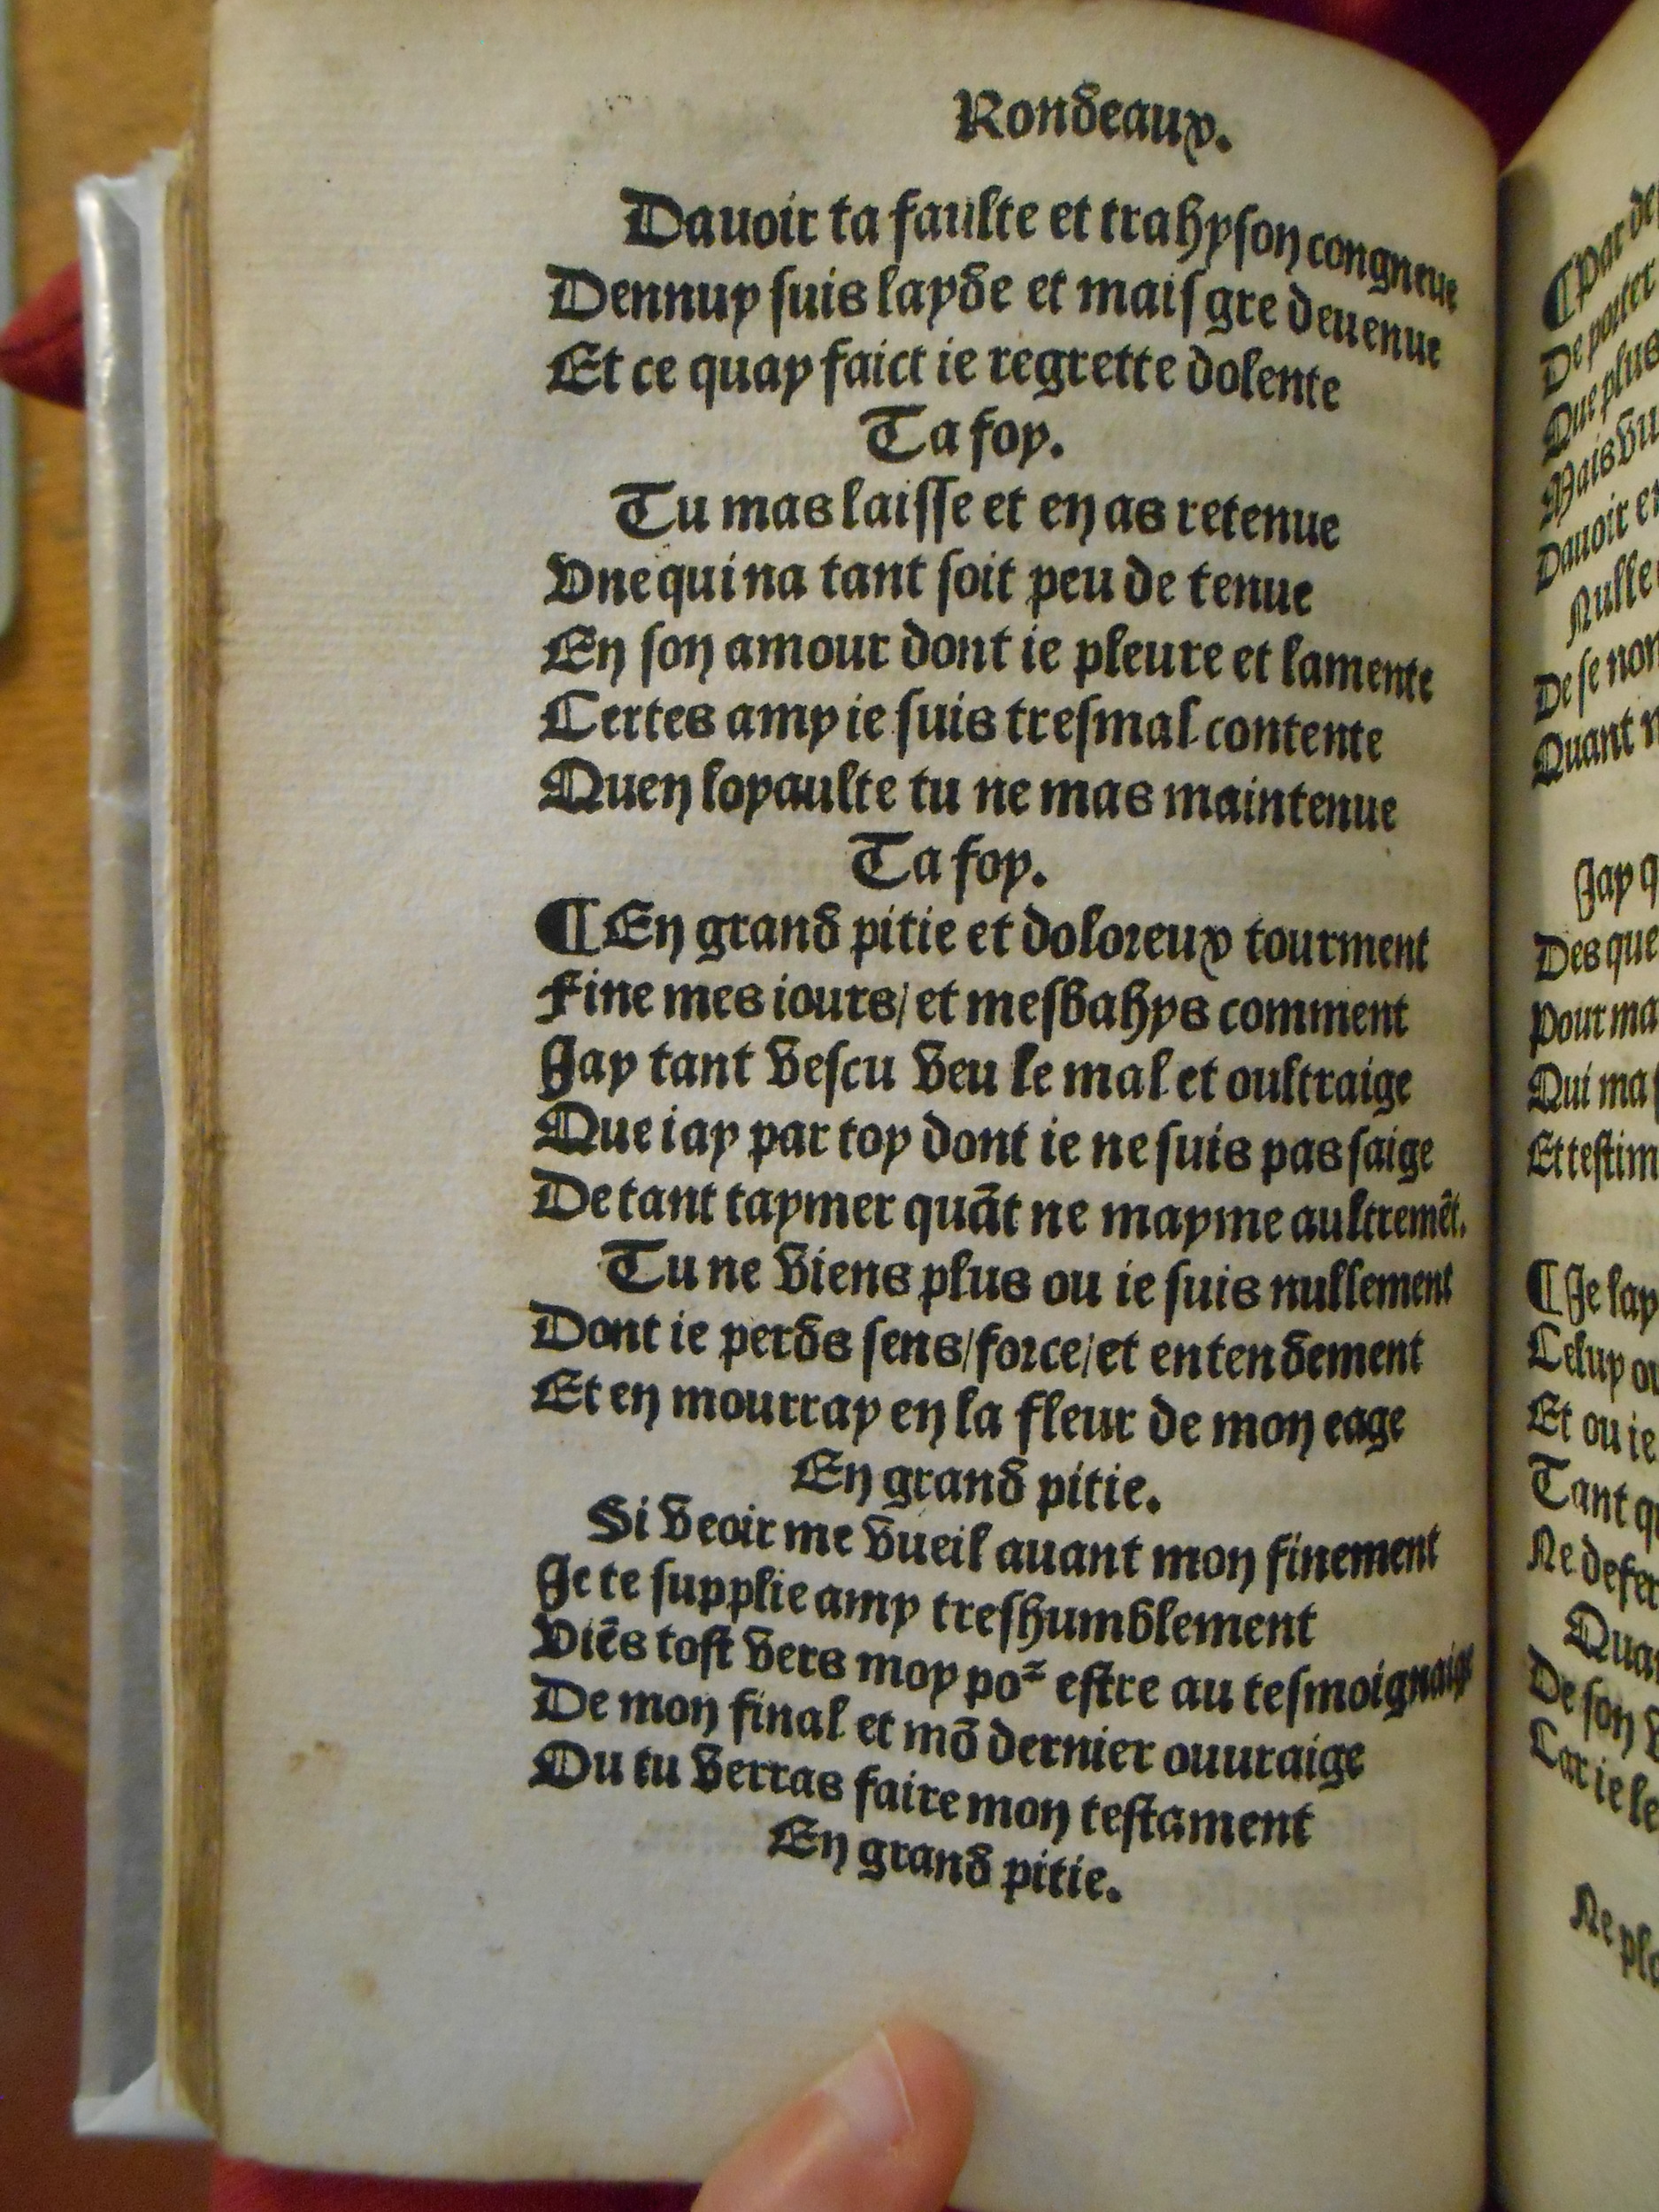 Rondeaux.
Dauoir ta faulte et trahyson congneue
Dennuy suis layde et maisgre deuenue
Et ce quay faict ie regrette dolente
Ta foy.
Tu mas laisse et en as retenue
Vne qui na tant soit peu de tenue
En son amour dont ie pleure et lamente
Certes amy ie suis tresmal contente
Quen loyaulte tu ne mas maintenue
Ta foy.
¶ En grand pitie et doloreux tourment
Fine mes iours/ et mesbahys comment
Jay tant vescu veu le mal et oultraige
Que iay par toy dont ie ne suis pas saige
De tant taymer quãt ne mayme aultremẽt.
Tu ne viens plus ou ie suis nullement
Dont ie perds sens/force/et entendement
Et en mourray en la fleur de mon eage
En grand pitie.
Si veoir me vueil auant mon finement
Je te supplie amy treshumblement
Viẽs tost vers moy poꝛ estre au tesmoignaige
De mon final et mõ dernier ouuraige
Ou tu verras faire mon testament
En grand pitie.
¶ Par
De porter
Que plus
Mais
Dauoir
De se
Quant
Jay
Des que
Pour ma
Qui ma
¶ Je
Et ou ie
Tant
Ne
De son
Car ie le
Ne